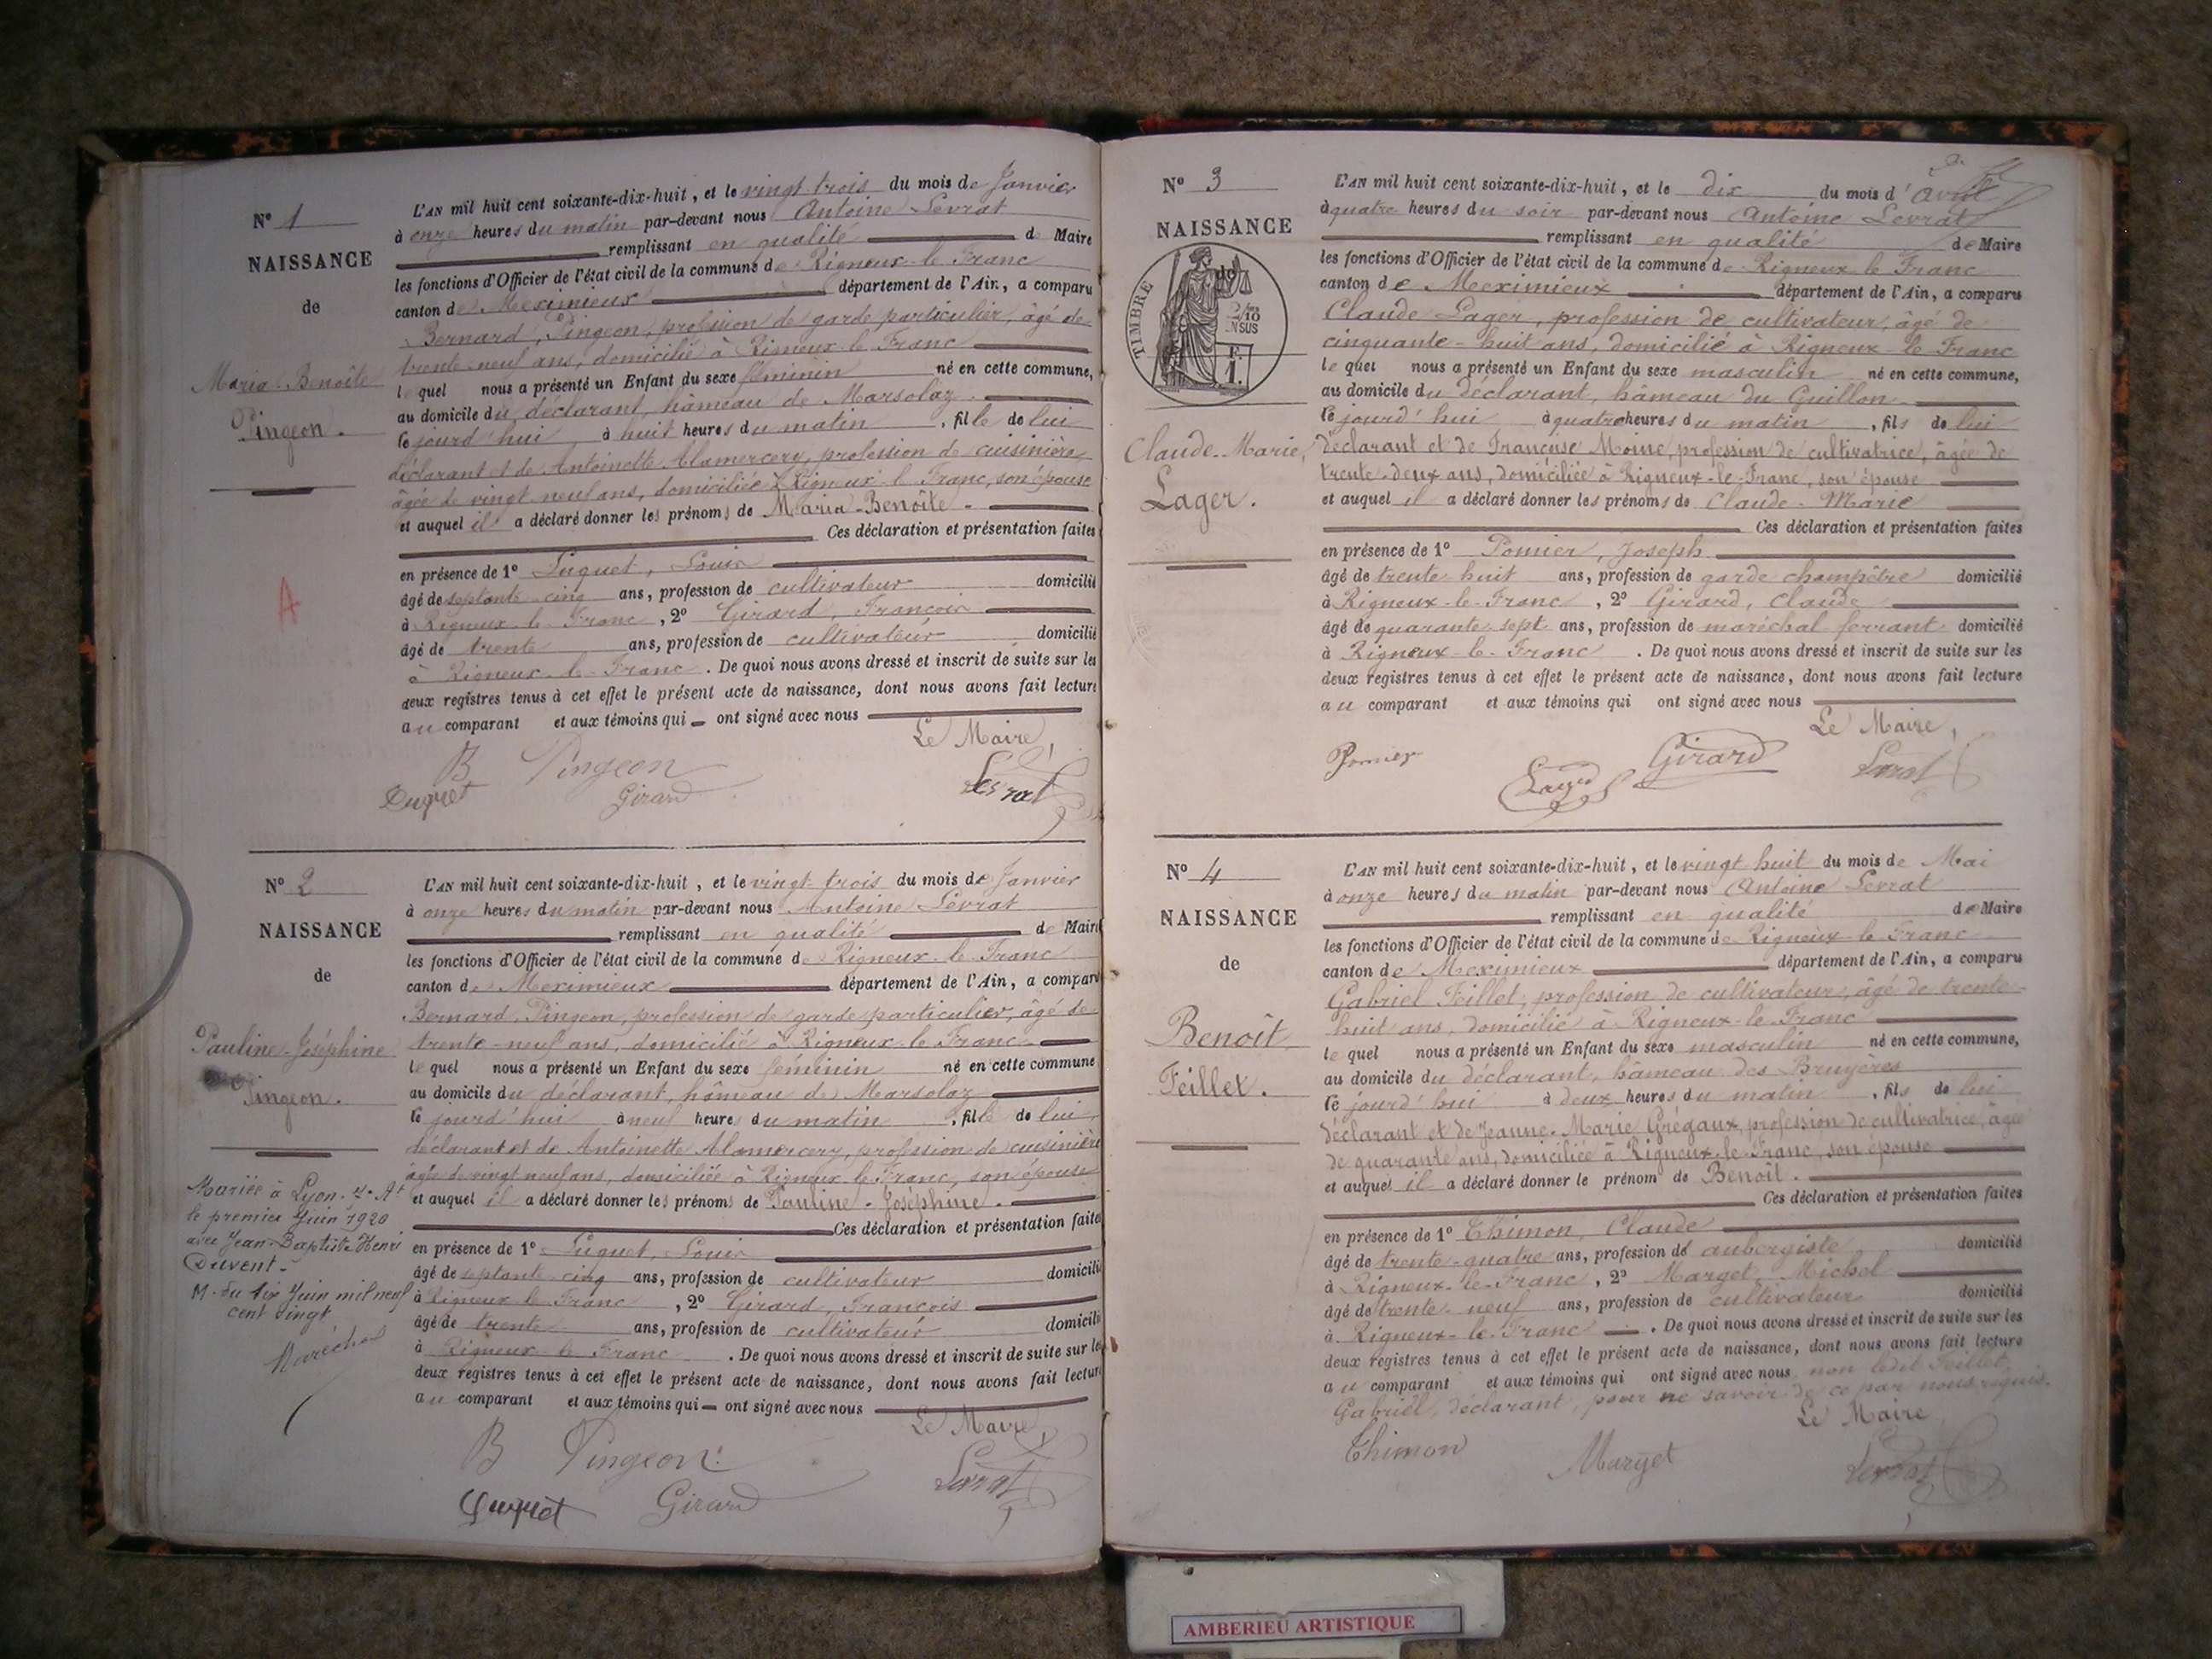 N° 1
NAISSANCE
de
Maria-Benoîte
Pingeon.
A
L'AN mil huit cent soixante-dix-huit, et le vingt trois du mois de Janvier
à onze heures du matin par-devant nous Antoine Levrat
remplissant en qualité de Maire
les fonctions d'Officier de l'état civil de la commune de Rigneux-le-Franc
canton de Meximieux département de l'Ain, a comparu
Bernard Pingeon, profession de garde particulier, âgé de
trente-neuf ans, domicilié à Rigneux-le-Franc
lequel nous a présenté un Enfant du sexe féminin né en cette commune,
au domicile du déclarant, hâmeau de Marsolaz
ce jourd'hui à huit heures du matin, fille de lui
déclarant et de Antoinette Alamercery, profession de cuisinière
âgée de vingt neuf ans, domiciliée à Rigneux-le-Franc, son épouse
et auquel il a déclaré donner les prénoms de Maria-Benoîte.
Ces déclaration et présentation faites
en présence de 1° Luquet, Louis
âgé de septante cinq ans, profession de cultivateur domicilié
à Rigneux-le-Franc, 2° Girard, François
âgé de trente ans, profession de cultivateur domicilié
à Rigneux-le-Franc. De quoi nous avons dressé et inscrit de suite sur les
deux registres tenus à cet effet le présent acte de naissance, dont nous avons fait lecture
au comparant et aux témoins qui ont signé avec nous
Le Maire,
B Pingeon
Luquet Girard Levrat
N° 2
NAISSANCE
de
Pauline-Joséphine
Pingeon.
Mariée à Lyon. 4e At
le premier Juin 1920
avec Jean-Baptiste Henri
Duvent.
M. du dix Juin mil neuf
cent vingt
Maréchal
L'AN mil huit cent soixante-dix-huit, et le vingt trois du mois de Janvier
à onze heures du matin par-devant nous Antoine Levrat
remplissant en qualité de Maire
les fonctions d'Officier de l'état civil de la commune de Rigneux-le-Franc
canton de Meximieux département de l'Ain, a comparu
Bernard Pingeon, profession de garde particulier, âgé de
trente-neuf ans, domicilié à Rigneux-le-Franc
lequel nous a présenté un Enfant du sexe féminin né en cette commune
au domicile du déclarant, hâmeau de Marsolaz
ce jourd'hui à neuf heures du matin, fille de lui
déclarant et de Antoinette Alamercery, profession de cuisinière
âgée de vingt neuf ans, domiciliée à Rigneux-le-Franc, son épouse
et auquel il a déclaré donner les prénoms de Pauline-Joséphine.
Ces déclaration et présentation faites
en présence de 1° Luquet, Louis
âgé de septante cinq ans, profession de cultivateur domicilié
à Rigneux-le-Franc, 2° Girard, François
âgé de trente ans, profession de cultivateur domicilié
à Rigneux-le-Franc. De quoi nous avons dressé et inscrit de suite sur les
deux registres tenus à cet effet le présent acte de naissance, dont nous avons fait lecture
au comparant et aux témoins qui ont signé avec nous
Le Maire,
B Pingeon Levrat
Luquet Girard
N° 3
NAISSANCE
TIMBRE
2/10
EN SUS
F.
1.
Claude-Marie,
Lager.
L'AN mil huit cent soixante-dix-huit, et le dix du mois d'avril
à quatre heures du soir par-devant nous Antoine Levrat
remplissant en qualité de Maire
les fonctions d'Officier de l'état civil de la commune de Rigneux-le-Franc
canton de Meximieux département de l'Ain, a comparu
Claude Lager, profession de cultivateur, âgé de
cinquante-huit ans, domicilié à Rigneux-le-Franc
lequel nous a présenté un Enfant du sexe masculin né en cette commune,
au domicile du déclarant, hâmeau du Guillon
ce jourd'hui à quatre heures du matin, fils de lui
déclarant et de Françoise Moine, profession de cultivatrice, âgée de
trente-deux ans, domiciliée à Rigneux-le-Franc, son épouse
et auquel il a déclaré donner les prénoms de Claude-Marie
Ces déclaration et présentation faites
en présence de 1° Pomier, Joseph
âgé de trente huit ans, profession de garde champêtre domicilié
à Rigneux-le-Franc, 2° Girard, Claude
âgé de quarante sept ans, profession de maréchal ferrant domicilié
à Rigneux-le-Franc. De quoi nous avons dressé et inscrit de suite sur les
deux registres tenus à cet effet le présent acte de naissance, dont nous avons fait lecture
au comparant et aux témoins qui ont signé avec nous
Le Maire,
Pomier Lager Girard Levrat
N° 4
NAISSANCE
de
Benoît
Feillet.
L'AN mil huit cent soixante-dix-huit, et le vingt huit du mois de Mai
à onze heures du matin par-devant nous Antoine Levrat
remplissant en qualité de Maire
les fonctions d'Officier de l'état civil de la commune de Rigneux-le-Franc
canton de Meximieux département de l'Ain, a comparu
Gabriel Feillet, profession de cultivateur, âgé de trente-
huit ans, domicilié à Rigneux-le-Franc
lequel nous a présenté un Enfant du sexe masculin né en cette commune,
au domicile du déclarant, hâmeau des Bruyères
ce jourd'hui à deux heures du matin, fils de lui
déclarant et de Jeanne-Marie Grégaux, profession de cultivatrice, âgée
de quarante ans, domiciliée à Rigneux-le-Franc, son épouse
et auquel il a déclaré donner le prénom de Benoît.
Ces déclaration et présentation faites
en présence de 1° Thimon, Claude
âgé de trente-quatre ans, profession de aubergiste domicilié
à Rigneux-le-Franc, 2° Marget, Michel
âgé de trente-neuf ans, profession de cultivateur domicilié
à Rigneux-le-Franc. De quoi nous avons dressé et inscrit de suite sur les
deux registres tenus à cet effet le présent acte de naissance, dont nous avons fait lecture
au comparant et aux témoins qui ont signé avec nous non ledit Feillet
Gabriel, déclarant, pour ne savoir de ce par nous requis.
Le Maire
Thimon Marget Levrat
AMBERIEU ARTISTIQUE